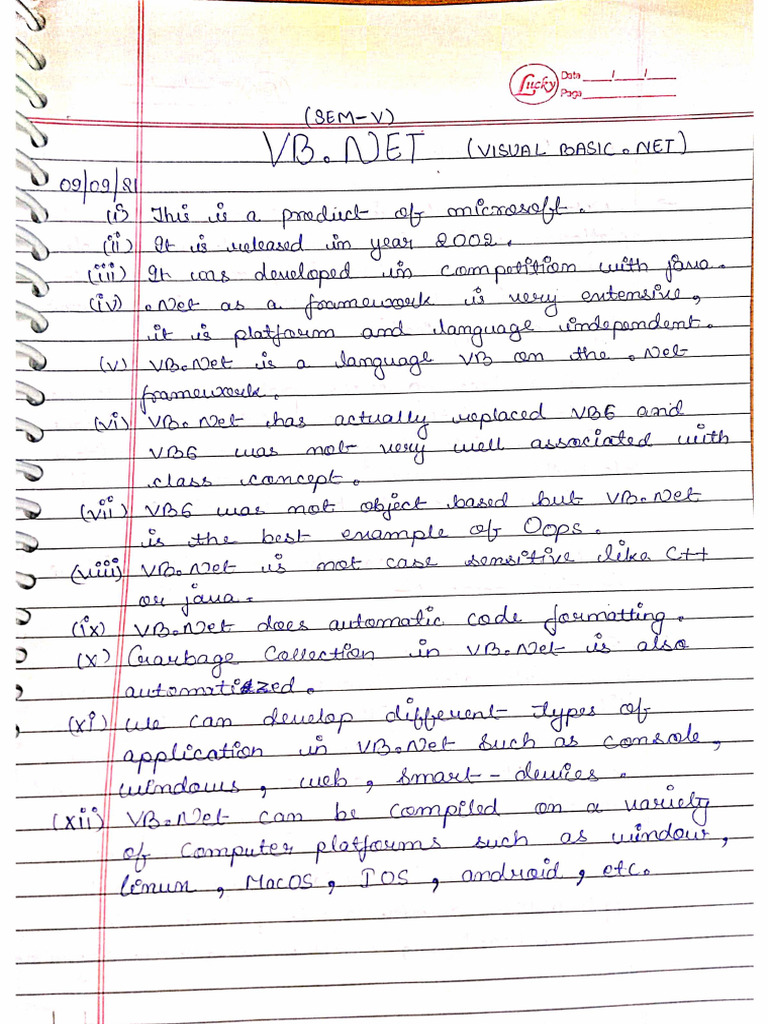 Lucky
Date ___/___/___
Page ___________
(SEM-V)
VB.NET (VISUAL BASIC.NET)
09/09/21
(i) This is a product of microsoft.
(ii) It is released in year 2002.
(iii) It was developed in competition with java.
(iv) .Net as a framework is very extensive,
it is platform and language independent.
(v) VB.Net is a language VB on the .Net
framework.
(vi) VB.Net has actually replaced VB6 and
VB6 was not very well associated with
class concept.
(vii) VB6 was not object based but VB.Net
is the best example of Oops.
(viii) VB.Net is not case sensitive like C++
or java.
(ix) VB.Net does automatic code formatting.
(x) Garbage Collection in VB.Net is also
automatized.
(xi) We can develop different types of
application in VB.Net such as console,
windows, web, smart-devies.
(xii) VB.Net can be compiled on a variety
of computer platforms such as window,
linux, MacOS, IOS, android, etc.